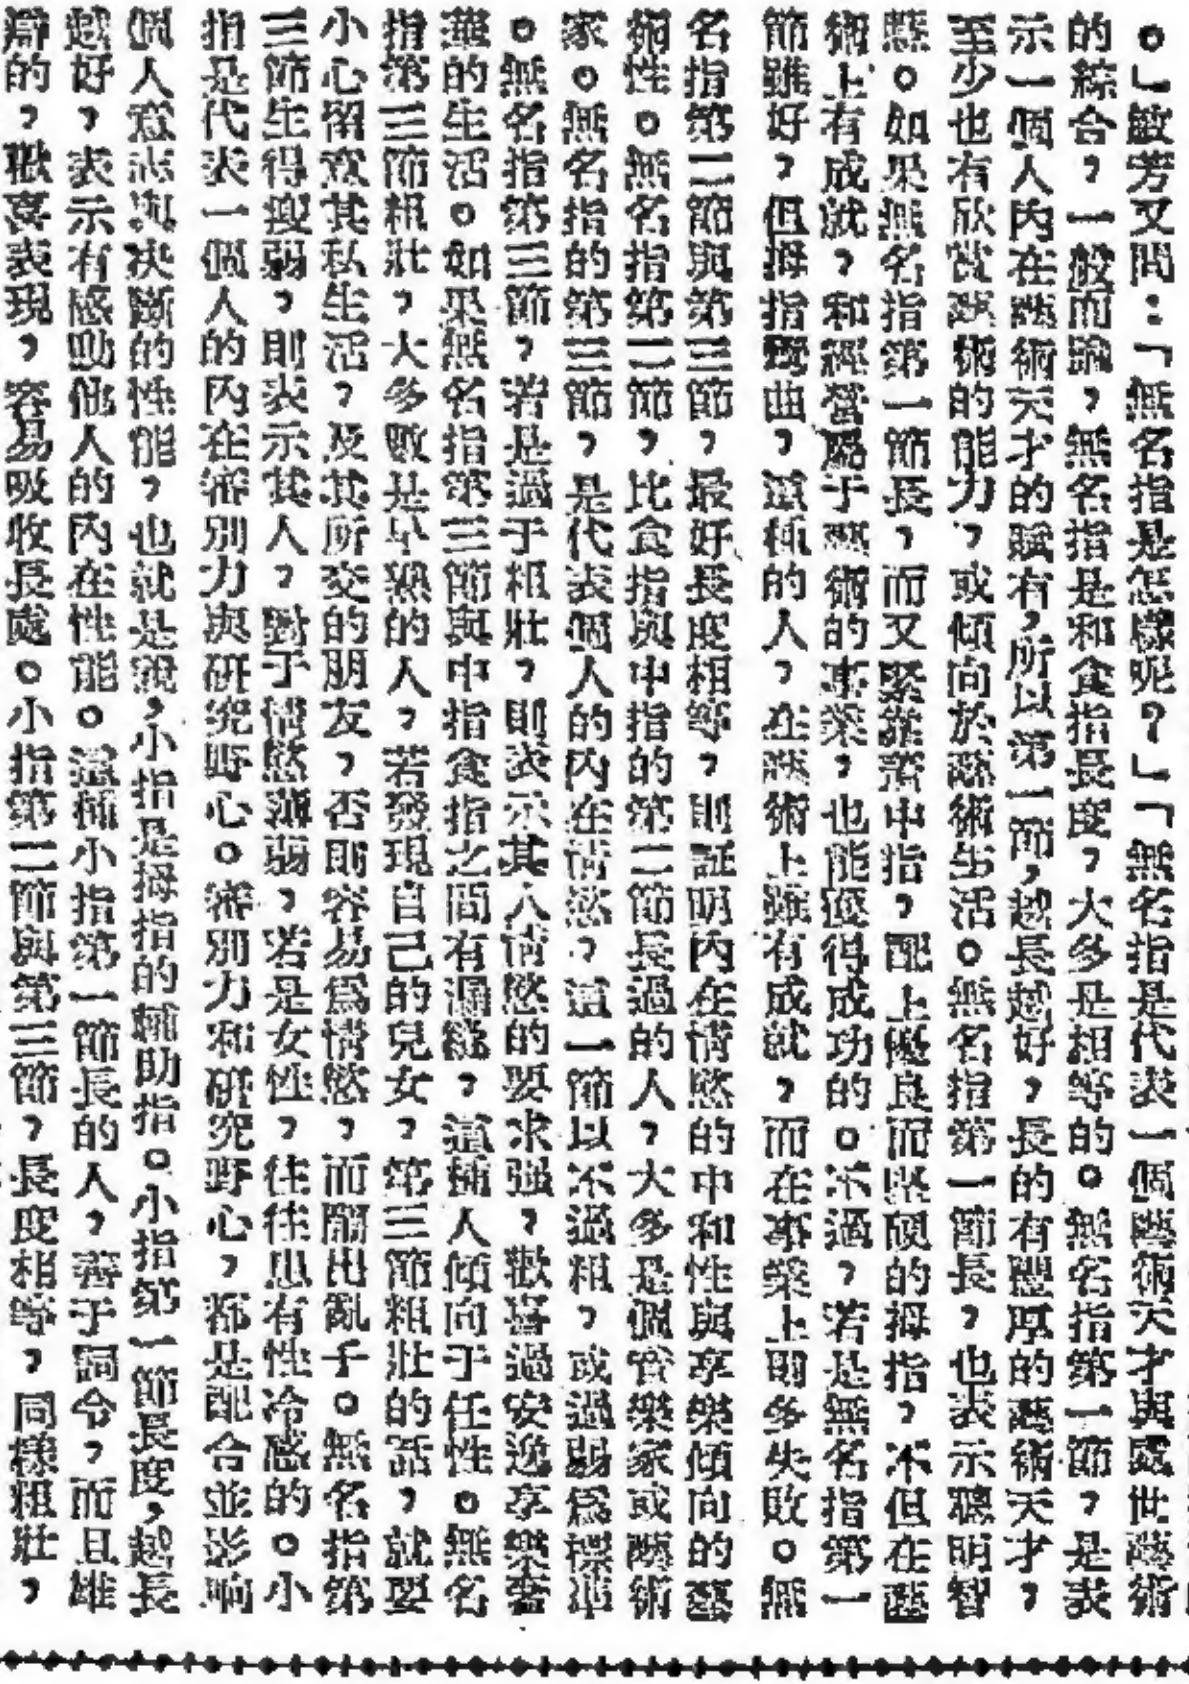 。」敏芳又問：「無名指是怎樣呢？」「無名指是代表一個藝術天才與處世藝術
的綜合，一般而論，無名指是和食指長度，大多是相等的。無名指第一節，是表
示一個人內在藝術天才的賦有，所以第一節，越長越好，長的有豐厚的藝術天才，
至少也有欣賞藝術的能力，或傾向於藝術生活。無名指第一節長，也表示聰明智
慧。如果無名指第一節長，而又緊靠著中指，配上優良而堅硬的拇指，不但在藝
術上有成就，和經營屬于藝術的事業，也能獲得成功的。不過，若是無名指第一
節雖好，但拇指彎曲，這種的人，在藝術上雖有成就，而在事業上則多失敗。無
名指第二節與第三節，最好長度相等，則証明內在情慾的中和性與享樂傾向的藝
術性。無名指第二節，比食指與中指的第二節長過的人，大多是個音樂家或藝術
家。無名指的第三節，是代表個人的內在情慾，這一節以不過粗，或過弱爲標準
。無名指第三節，若是過于粗壯，則表示其人情慾的要求强，歡喜過安逸享樂奢
華的生活。如果無名指第三節與中指食指之間有漏縫，這種人傾向于任性。無名
指第三節粗壯，大多數是早熟的人，若發現自己的兒女，第三節粗壯的話，就要
小心留意其私生活，及其所交的朋友，否則容易爲情慾，而鬧出亂子。無名指第
三節生得瘦弱，則表示其人，對于情慾薄弱，若是女性，往往患有性冷感的。小
指是代表一個人的內在審別力與研究野心。審別力和研究野心，都是配合並影响
個人意志與决斷的性能，也就是說，小指是拇指的輔助指。小指第一節長度，越長
越好，表示有感動他人的內在性能。這種小指第一節長的人，善于詞令，而且雄
辯的，歡喜表現，容易吸收長處。小指第二節與第三節，長度相等，同樣粗壯，